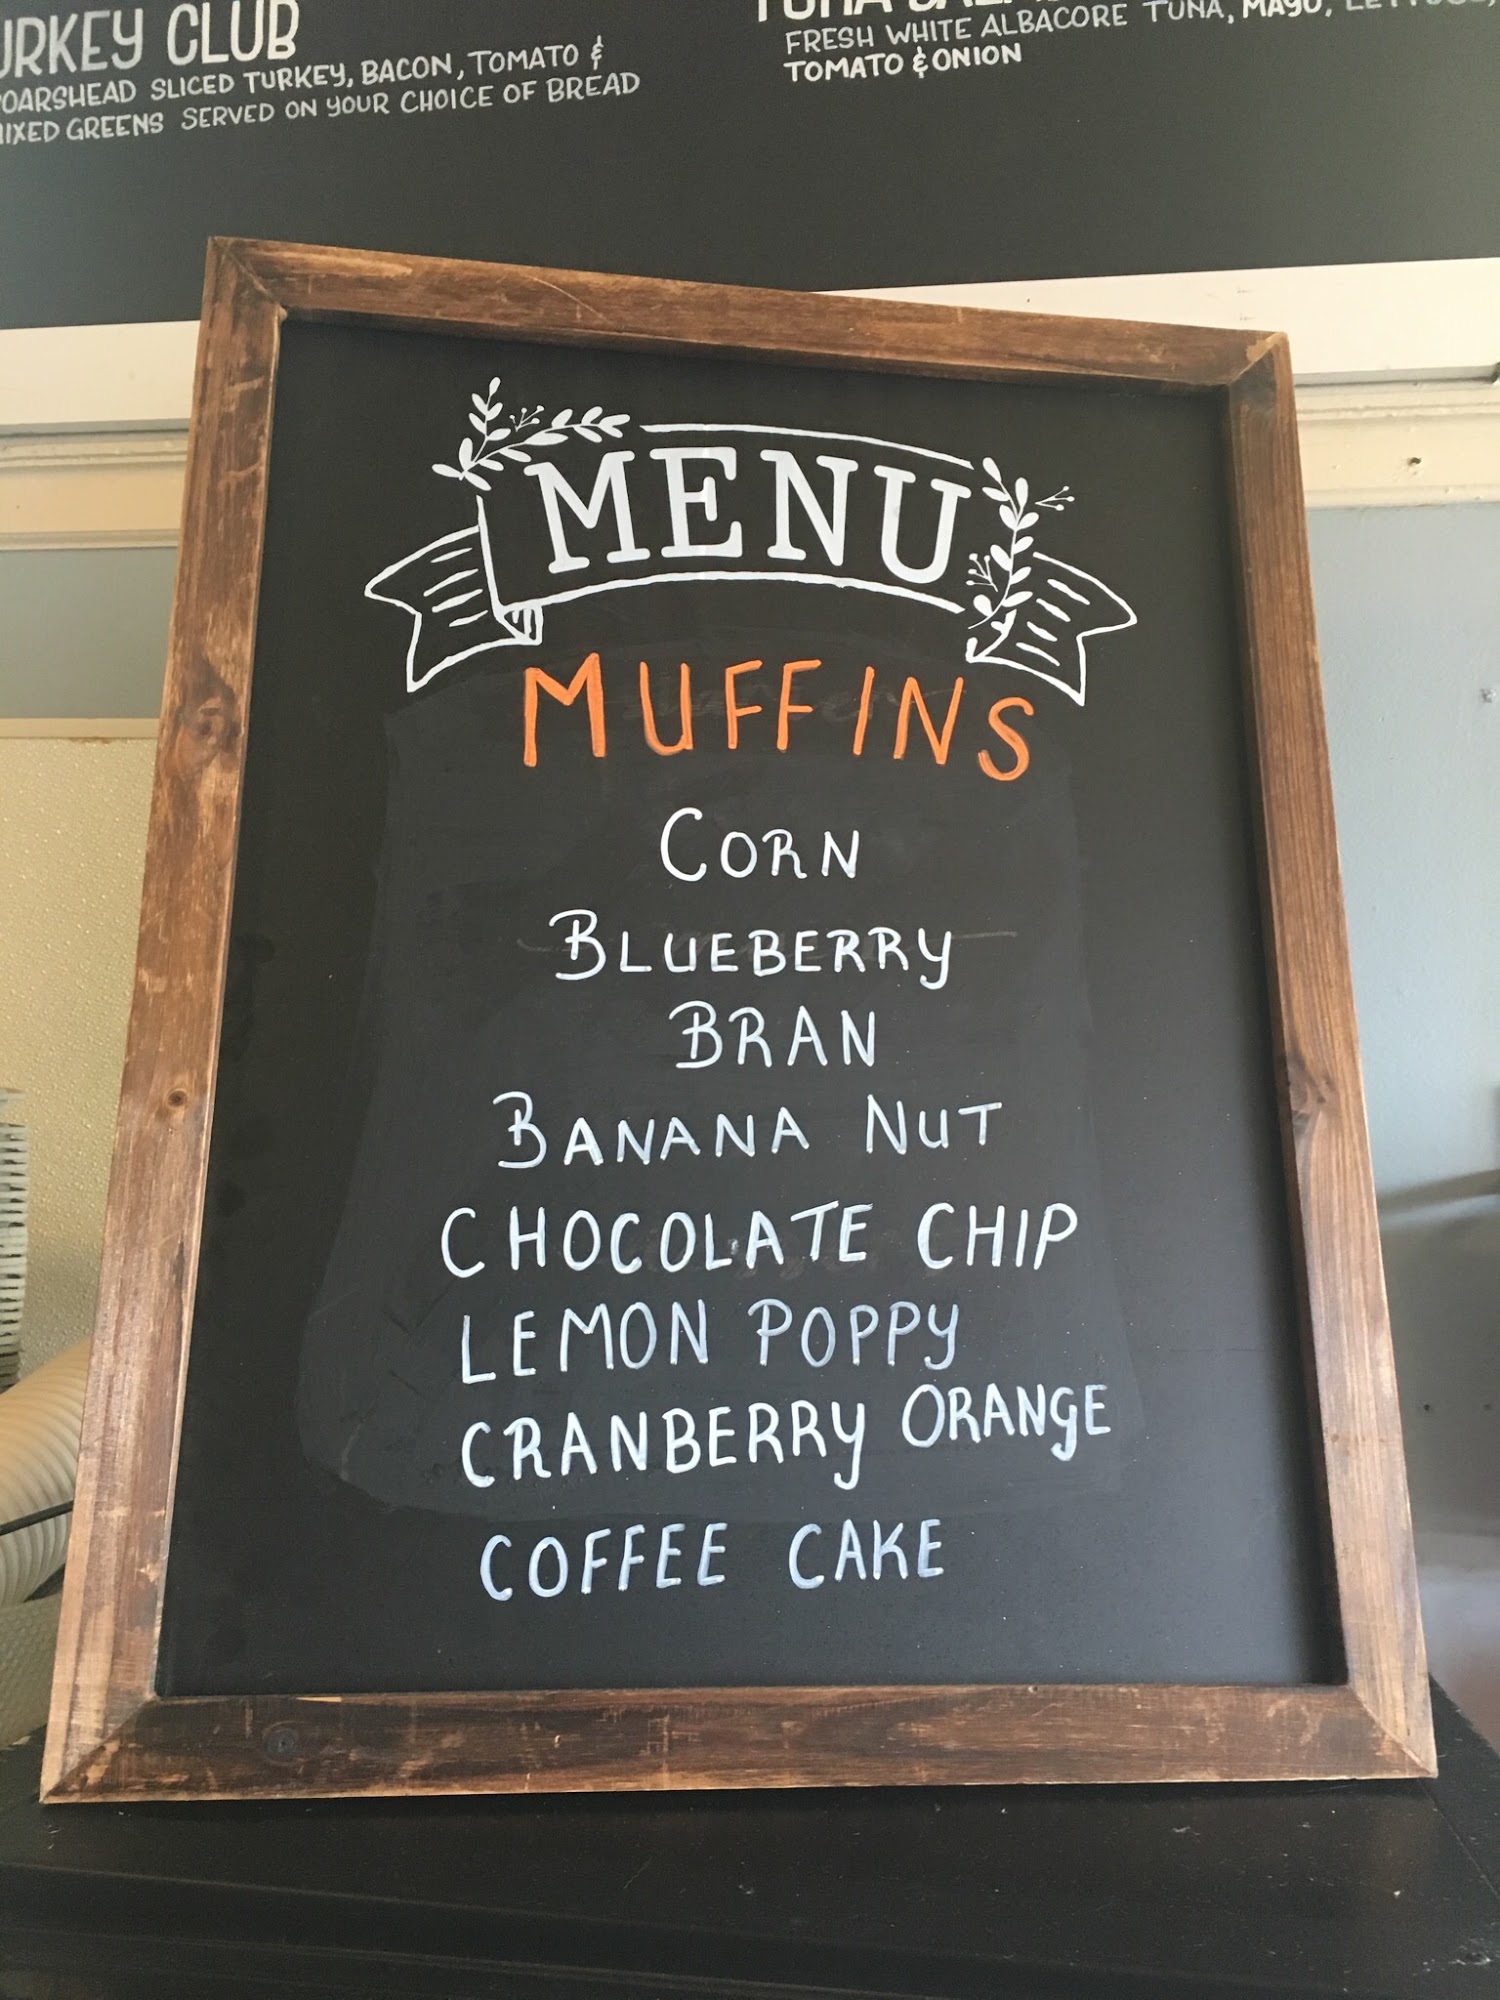 URKEY CLUB
OARSHEAD SLICED TURKEY, BACON, TOMATO &
MIXED GREENS SERVED ON YOUR CHOICE OF BREAD
FRESH WHITE ALBACORE TUNA, MAYO, LETTUCE,
TOMATO & ONION
MENU
MUFFINS
CORN
BLUEBERRY
BRAN
BANANA NUT
CHOCOLATE CHIP
LEMON POPPY
CRANBERRY ORANGE
COFFEE CAKE